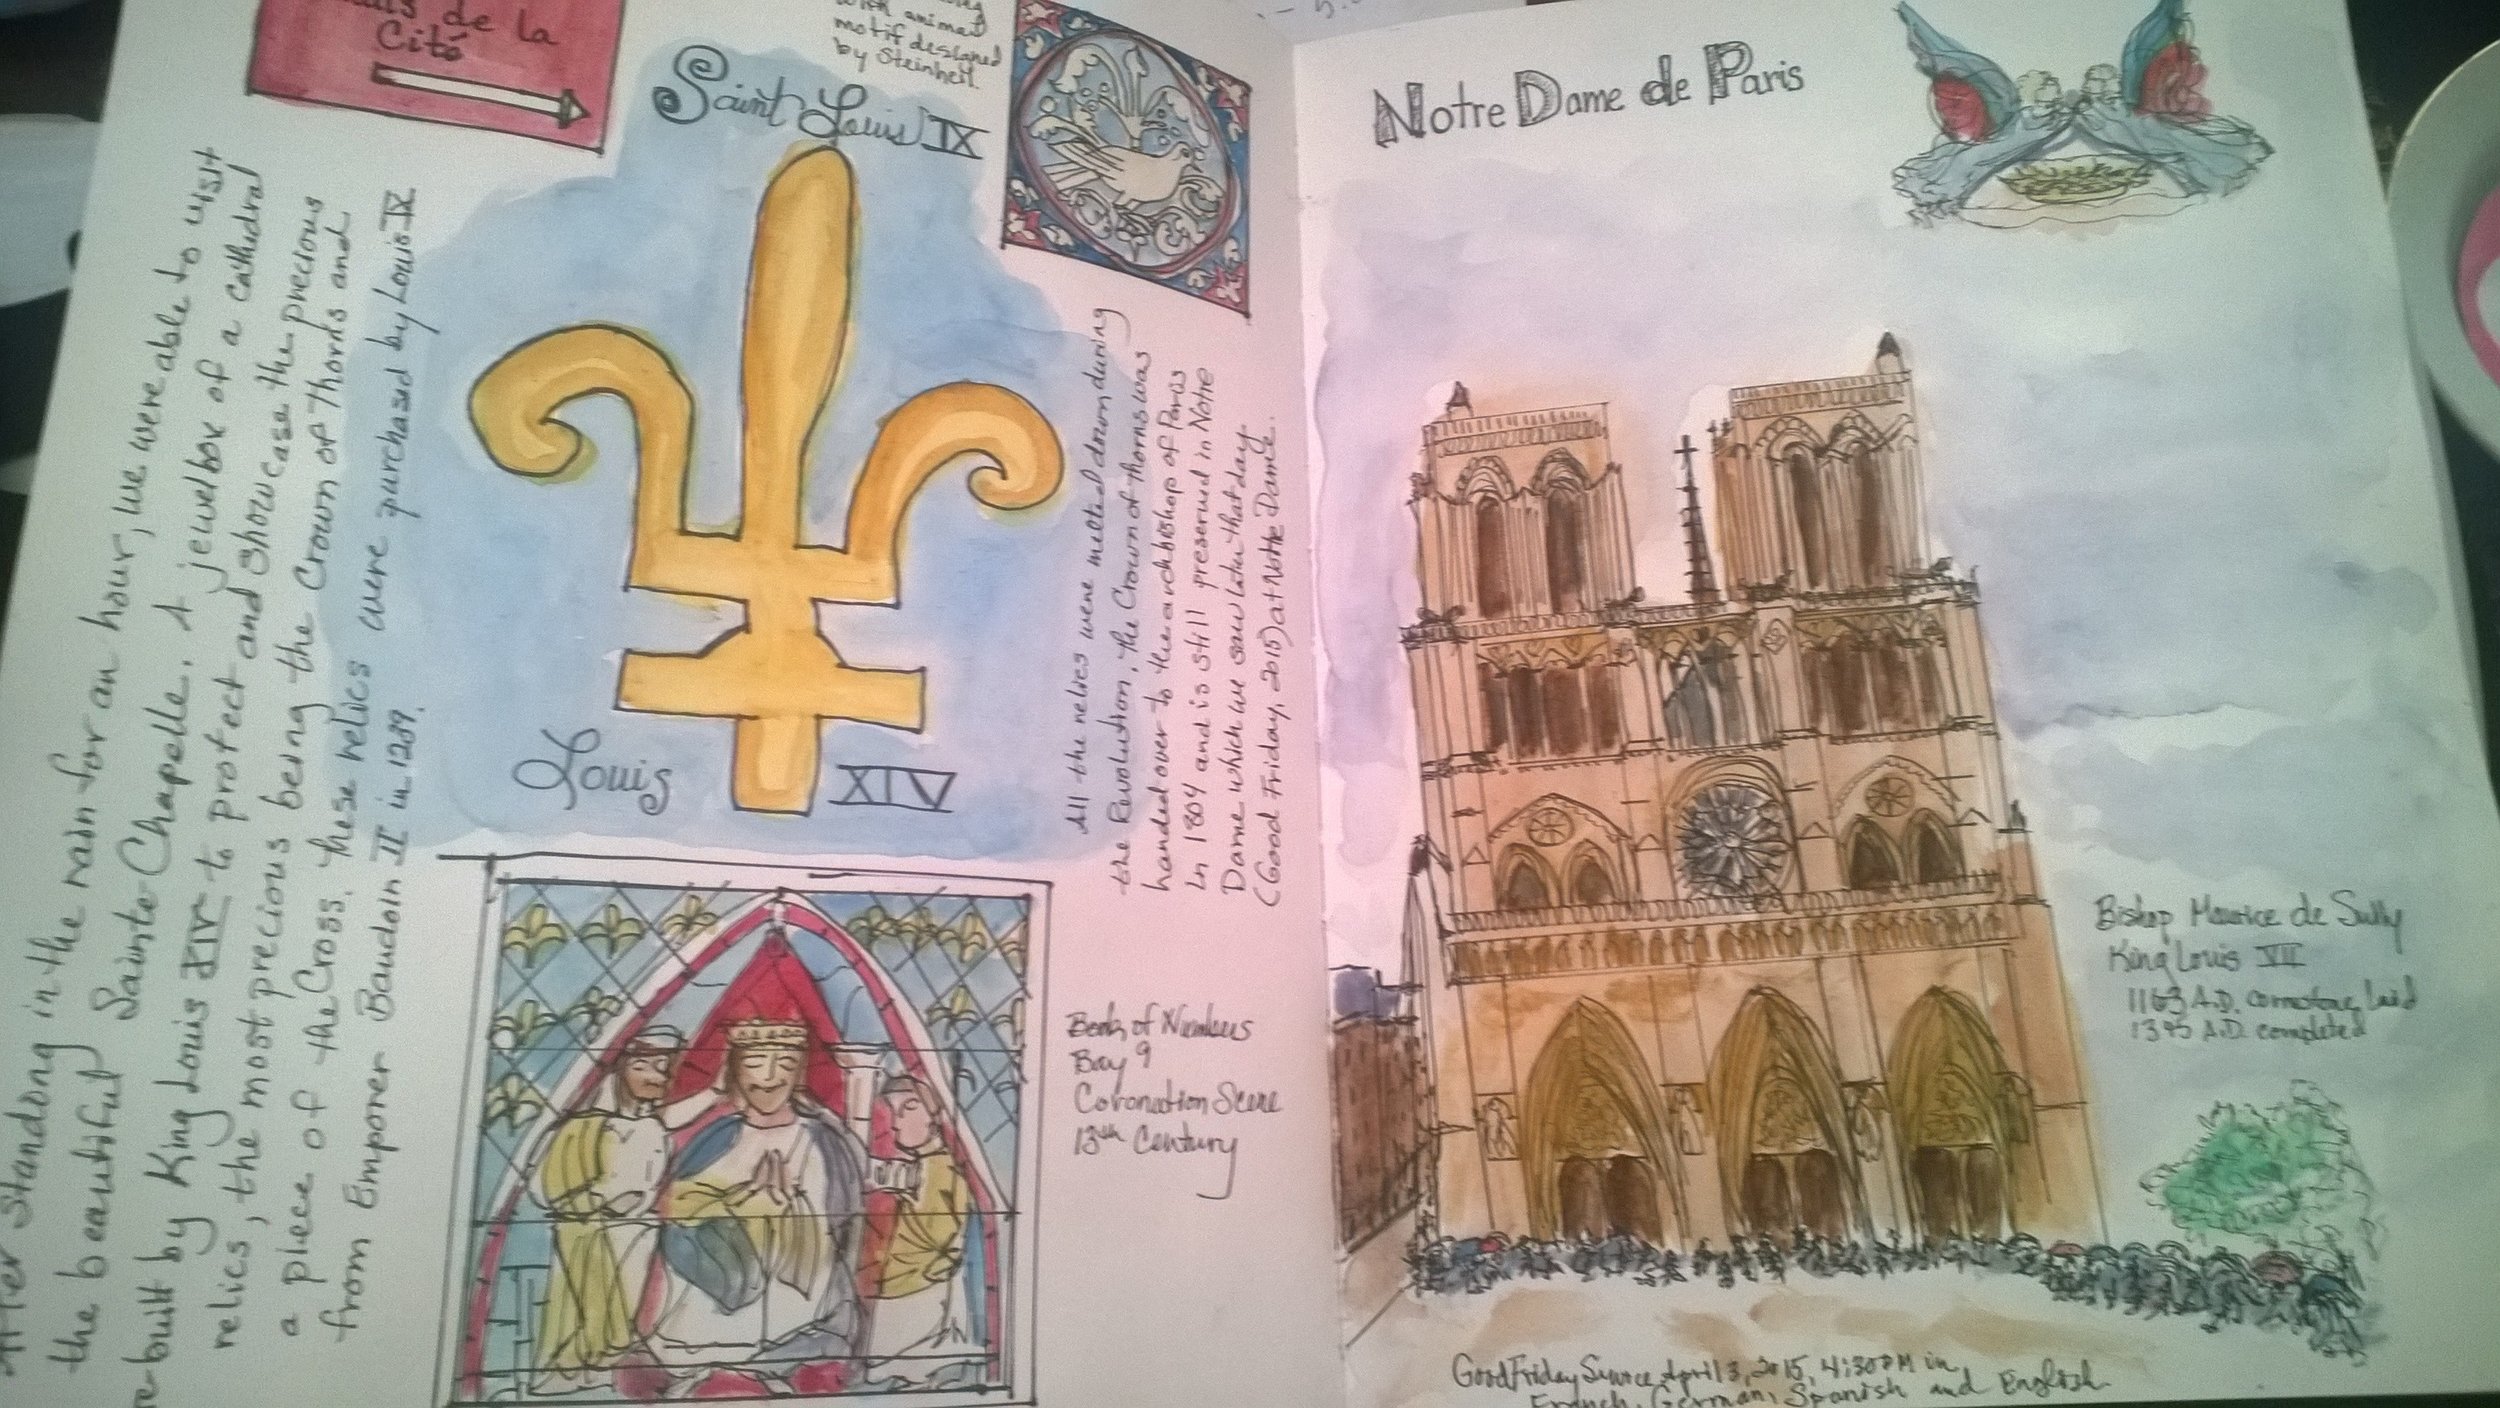 de la
Cité
with animal
motif designed
by Steinheil.
Saint Louis IX
After standing in the rain for an hour, we were able to visit
the beautiful Sainte-Chapelle. A jewelbox of a cathedral
built by King Louis XIV to protect and showcase the precious
relics, the most precious being the Crown of Thorns and
a piece of the Cross. These relics were purchased by Louis IX
from Emporer Baudoin II in 1239.
Louis XIV
All the relics were melted down during
the Revolution, the Crown of thorns was
handed over to the archbishop of Paris
in 1804 and is still preserved in Notre
Dame which we saw later that day.
(Good Friday, 2015) at Notre Dame.
Book of Numbers
Bay 9
Coronation Scene
13th Century
Notre Dame de Paris
Bishop Maurice de Sully
King Louis VII
1163 A.D. cornerstone laid
1345 A.D. completed
Good Friday Service, April 3, 2015, 4:30 PM in
French, German, Spanish and English.